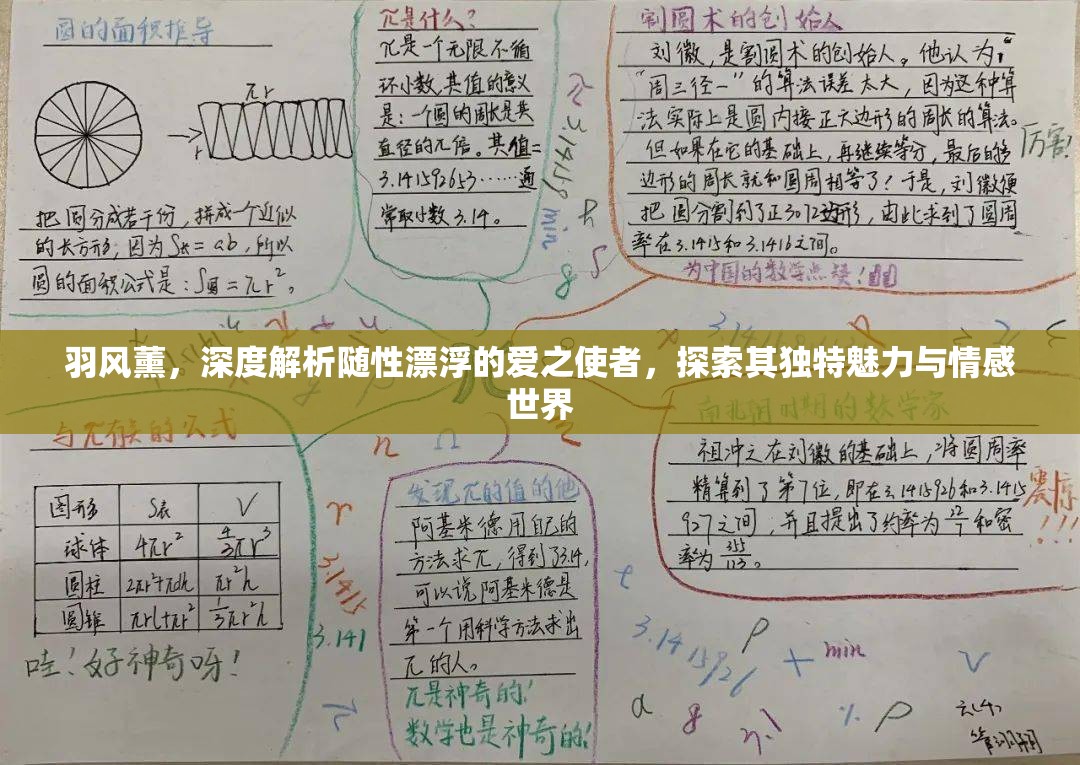 圆的面积推导
πr
r
把圆分成若干份，拼成一个近似
的长方形；因为S长=ab，所以
圆的面积公式是：S圆=πr²。
π是什么？
π是一个无限不循
环小数，其值的意义
是：一个圆的周长是其
直径的π倍。其值=
3.141592653……通
常取小数3.14。
π 3.14159 min
割圆术的创始人
刘徽，是割圆术的创始人。他认为：
“周三径一”的算法误差太大，因为这种算
法实际上是圆内接正六边形的周长的算法。
但如果在它的基础上，再继续等分，最后的
边形的周长就和圆周相等了！于是，刘徽便
把圆分割到了正3072边形，由此求到了圆周
率在3.1415和3.1416之间。
厉害！
为中国的数学点赞！
羽风薰，深度解析随性漂浮的爱之使者，探索其独特魅力与情感
世界
与π有关的公式
图形 S表 V
球体 4πr² 4/3πr³
圆柱 2πr²+πdh πr²h
圆锥 πrl+πr² 1/3πr²h
哇！好神奇呀！
n Ω
r
3.1415
3.141
π
发现π的值的他
阿基米德用自己的
方法求π，得到了3.14，
可以说阿基米德是
第一个用科学方法求出
π的人。
π是神奇的！
数学也是神奇的！
南北朝时期的数学家
祖冲之在刘徽的基础上，将圆周率
精算到了第7位，即在3.1415926和3.1415
927之间，并且提出了约率为22/7和密
率为355/113。
震惊！！！
t
3.1415926
ρ + min V
a g η % ρ